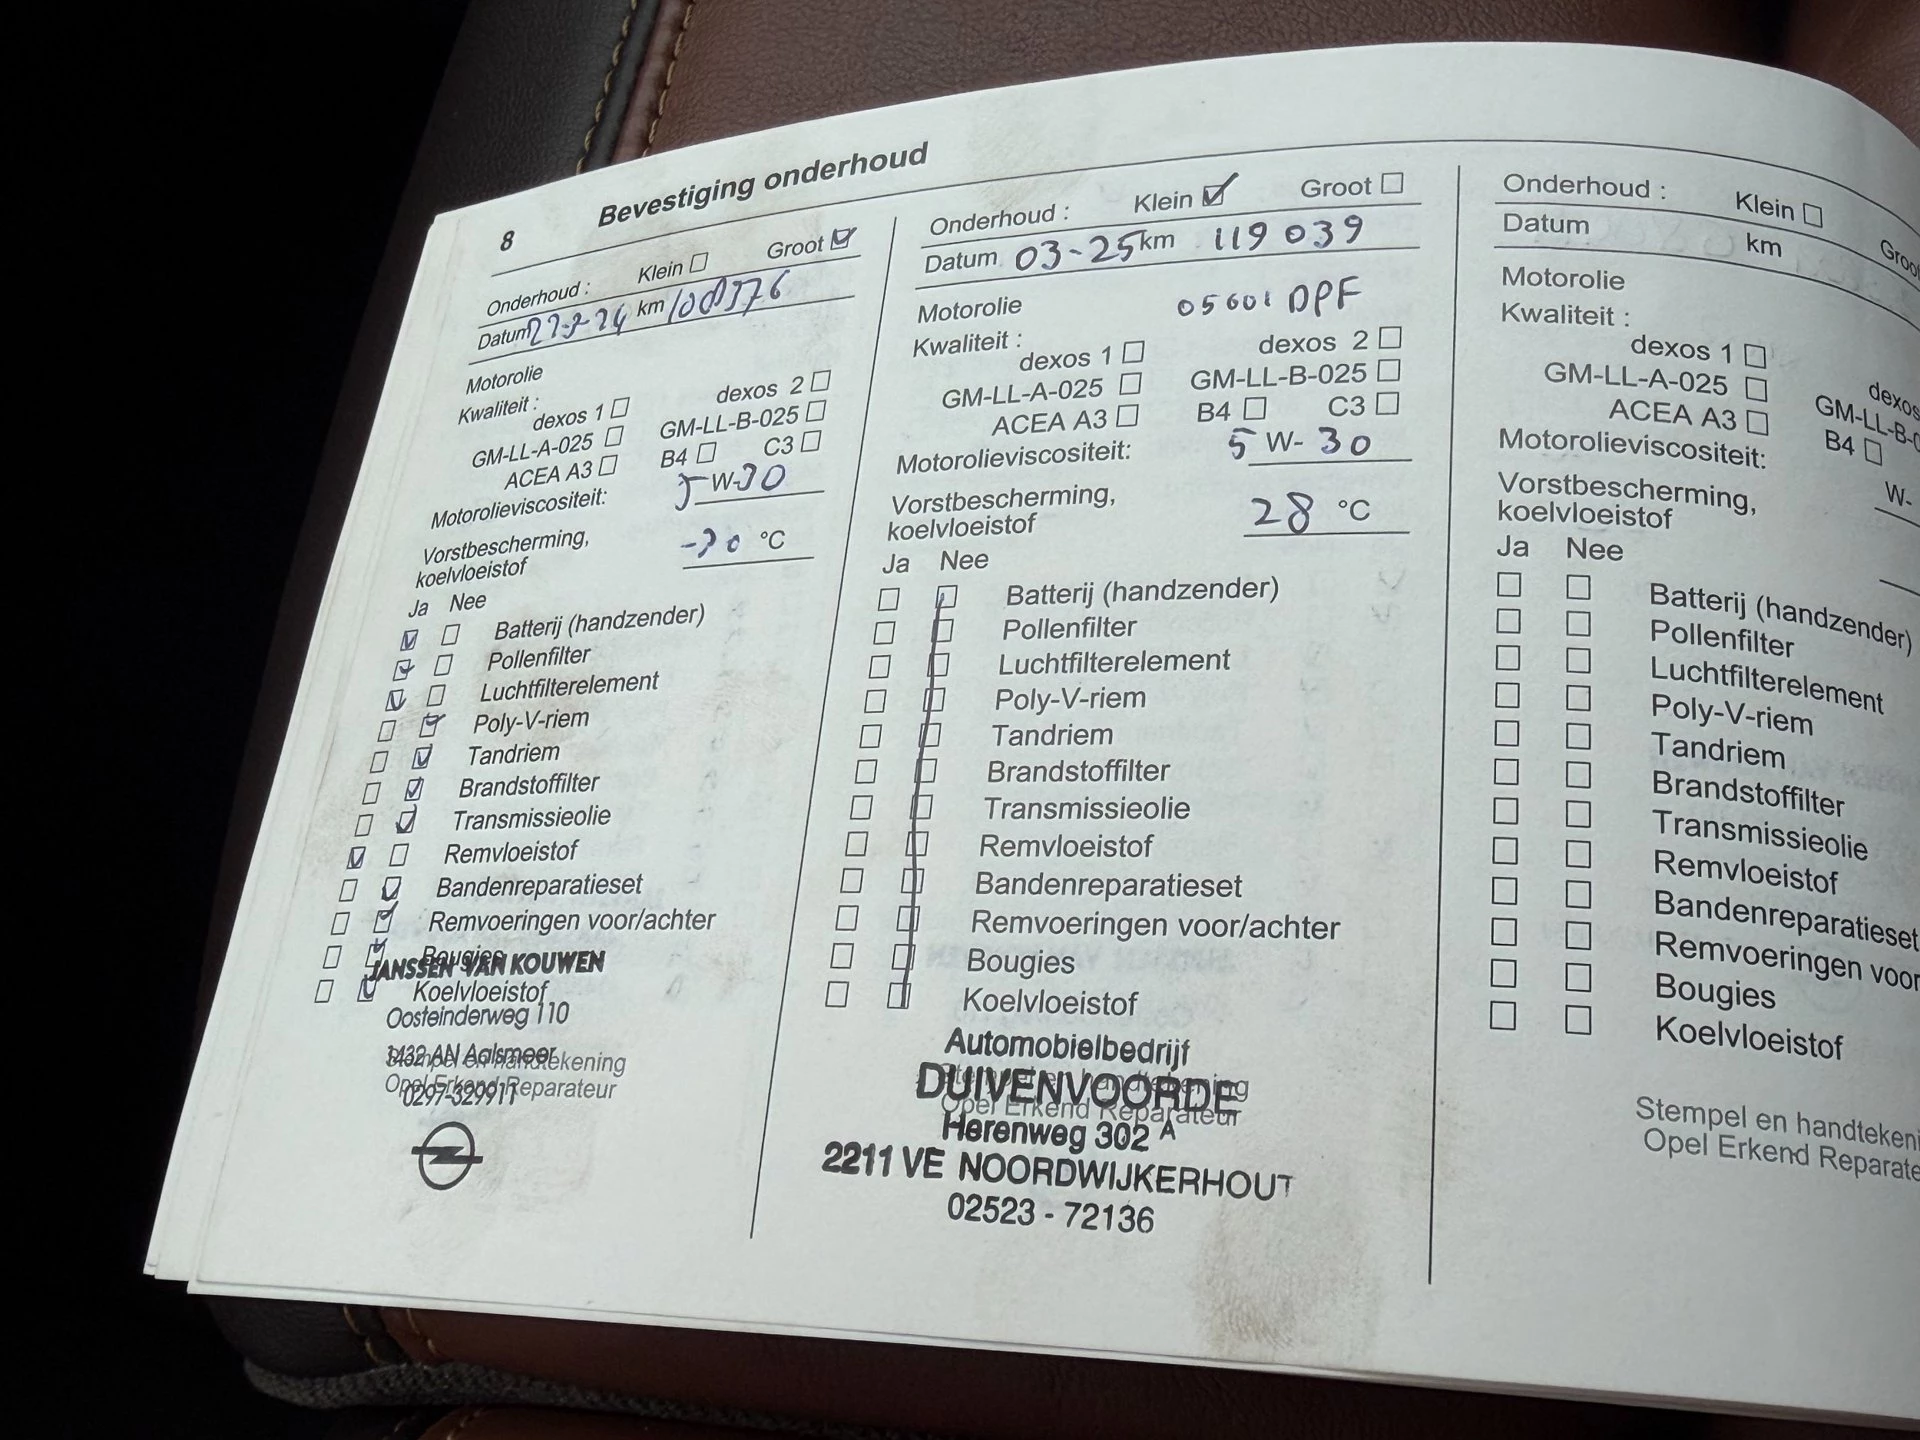 8 Bevestiging onderhoud
Onderhoud : Klein Groot
Datum km
Motorolie
Kwaliteit :
dexos 1 dexos 2
GM-LL-A-025 GM-LL-B-025
ACEA A3 B4 C3
Motorolieviscositeit: 5 W-30
Vorstbescherming,
koelvloeistof -30 °C
Ja Nee
Batterij (handzender)
Pollenfilter
Luchtfilterelement
Poly-V-riem
Tandriem
Brandstoffilter
Transmissieolie
Remvloeistof
Bandenreparatieset
Remvoeringen voor/achter
Bougies
JANSSEN VAN KOUWEN
Koelvloeistof
Oosteinderweg 110
1432 AN Aalsmeer
Stempel en handtekening
Opel Erkend Reparateur
0297-329911
Onderhoud : Klein Groot
Datum 03-25 km 119 039
Motorolie 05601 DPF
Kwaliteit :
dexos 1 dexos 2
GM-LL-A-025 GM-LL-B-025
ACEA A3 B4 C3
Motorolieviscositeit: 5 W- 30
Vorstbescherming,
koelvloeistof 28 °C
Ja Nee
Batterij (handzender)
Pollenfilter
Luchtfilterelement
Poly-V-riem
Tandriem
Brandstoffilter
Transmissieolie
Remvloeistof
Bandenreparatieset
Remvoeringen voor/achter
Bougies
Koelvloeistof
Automobielbedrijf
Stempel en handtekening
DUIVENVOORDE
Opel Erkend Reparateur
Herenweg 302 A
2211 VE NOORDWIJKERHOUT
02523 - 72136
Onderhoud : Klein Groo
Datum km
Motorolie
Kwaliteit :
dexos 1 dexos
GM-LL-A-025 GM-LL-B-0
ACEA A3 B4
Motorolieviscositeit: W-
Vorstbescherming,
koelvloeistof
Ja Nee
Batterij (handzender)
Pollenfilter
Luchtfilterelement
Poly-V-riem
Tandriem
Brandstoffilter
Transmissieolie
Remvloeistof
Bandenreparatieset
Remvoeringen voor
Bougies
Koelvloeistof
Stempel en handtekeni
Opel Erkend Reparate